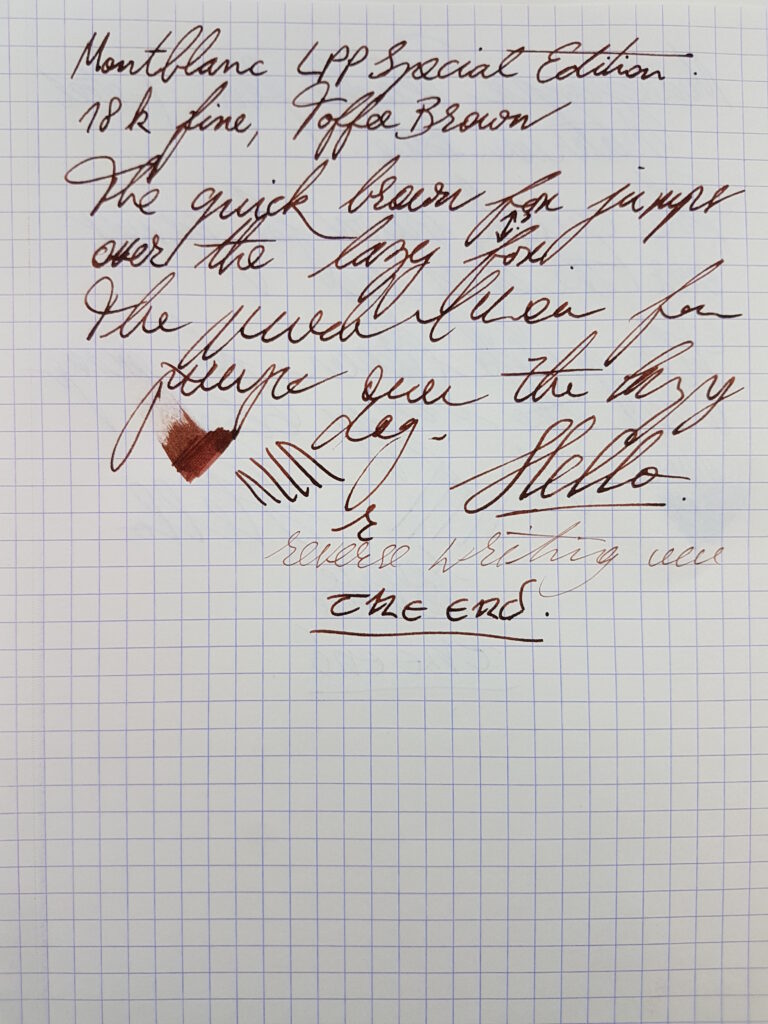 Montblanc LPP Special Edition.
18k fine, Toffee Brown
The quick brown fox jumps
over the lazy fox
The quick brown fox
jumps over the lazy
dog.
Hello.
r
reverse writing
THE END.